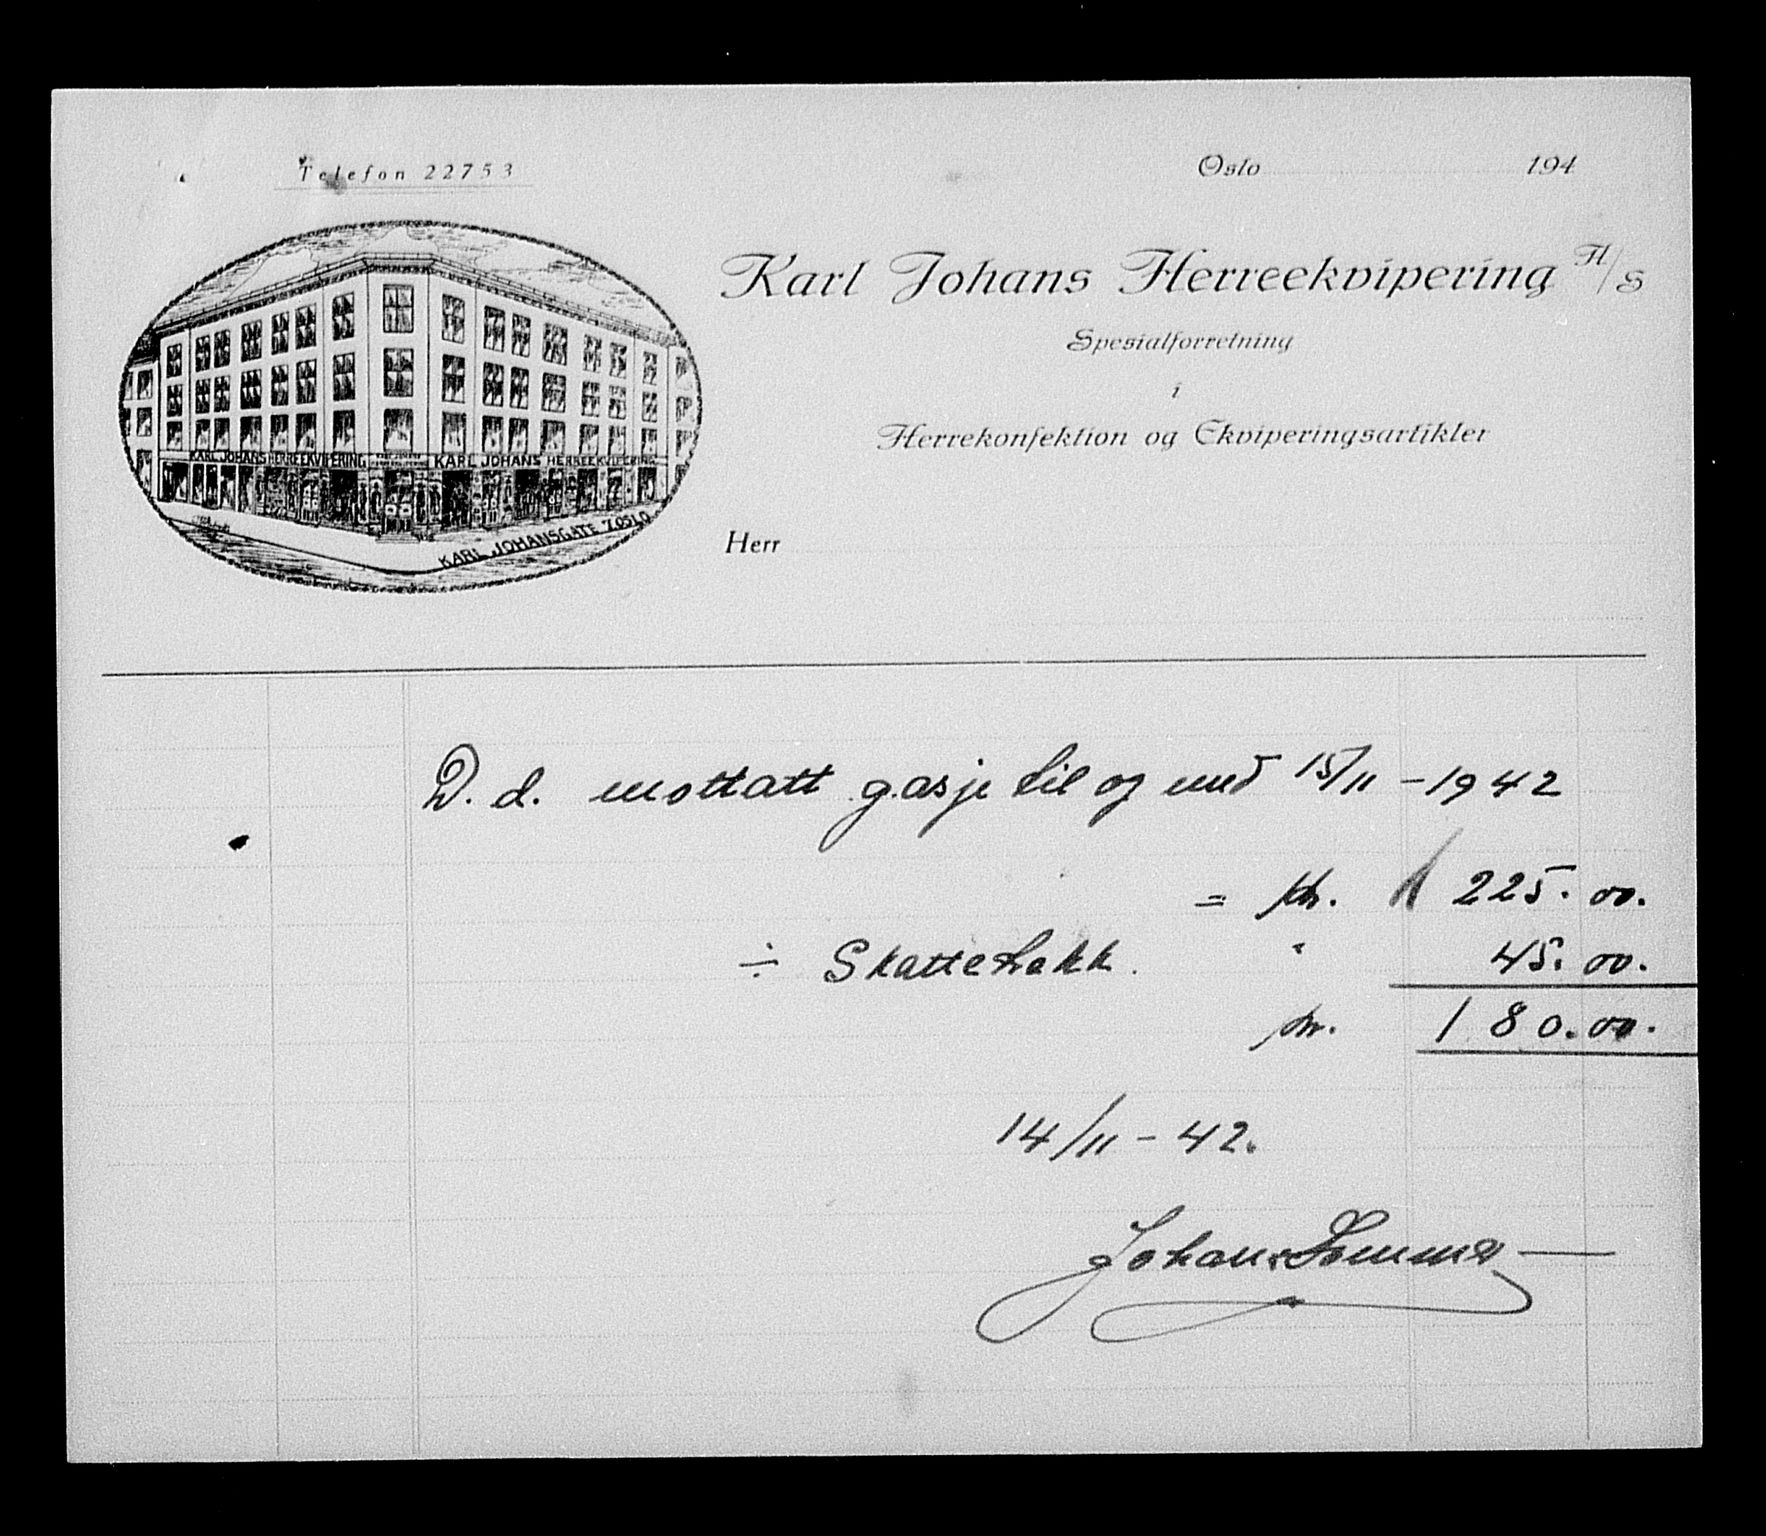 Telefon 22753
Oslo 194
Karl Johans Herreekvipering A/S
Spesialforretning
i
Herrekonfektion og Ekviperingsartikler
KARL JOHANS HERREEKVIPERING
KARL JOHANS HERREEKVIPERING
KARL JOHANSGATE 7 OSLO
Herr
D. d. mottatt gasje til og med 15/11 - 1942
= kr. 225.00.
÷ Skattetrekk. " 45.00.
kr. 180.00.
14/11 - 42.
Johan